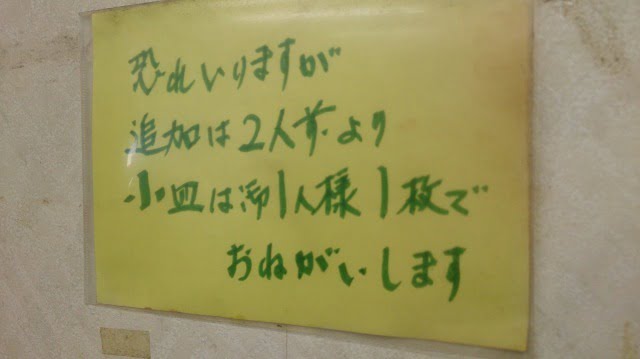 恐れいりますが
追加は2人前より
小皿は御1人様1枚で
おねがいします